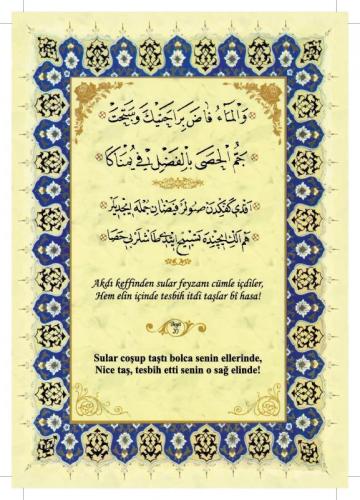 وَالْمَاءُ فَاضَ بِرَاحَتَيْكَ وَسَبَّحَتْ
صُمُّ الْحَصَى بِالْفَضْلِ فِي يُمْنَاكَا
آقدى كفكدن صولر فيضان جمله ايچديلر
هم الك ايچنده تسبيح ايتدى طاشلر بى حصا
Akdi keffinden sular feyzanı cümle içdiler,
Hem elin içinde tesbih itdi taşlar bî hasa!
Beyit
20
Sular coşup taştı bolca senin ellerinde,
Nice taş, tesbih etti senin o sağ elinde!